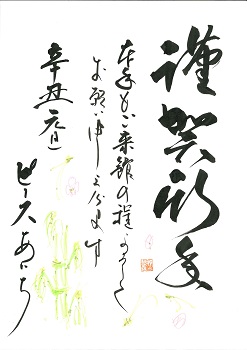 謹賀新年
本年もご来館の程よろしく
お願い申し上げます
辛丑元旦
ピースあいち